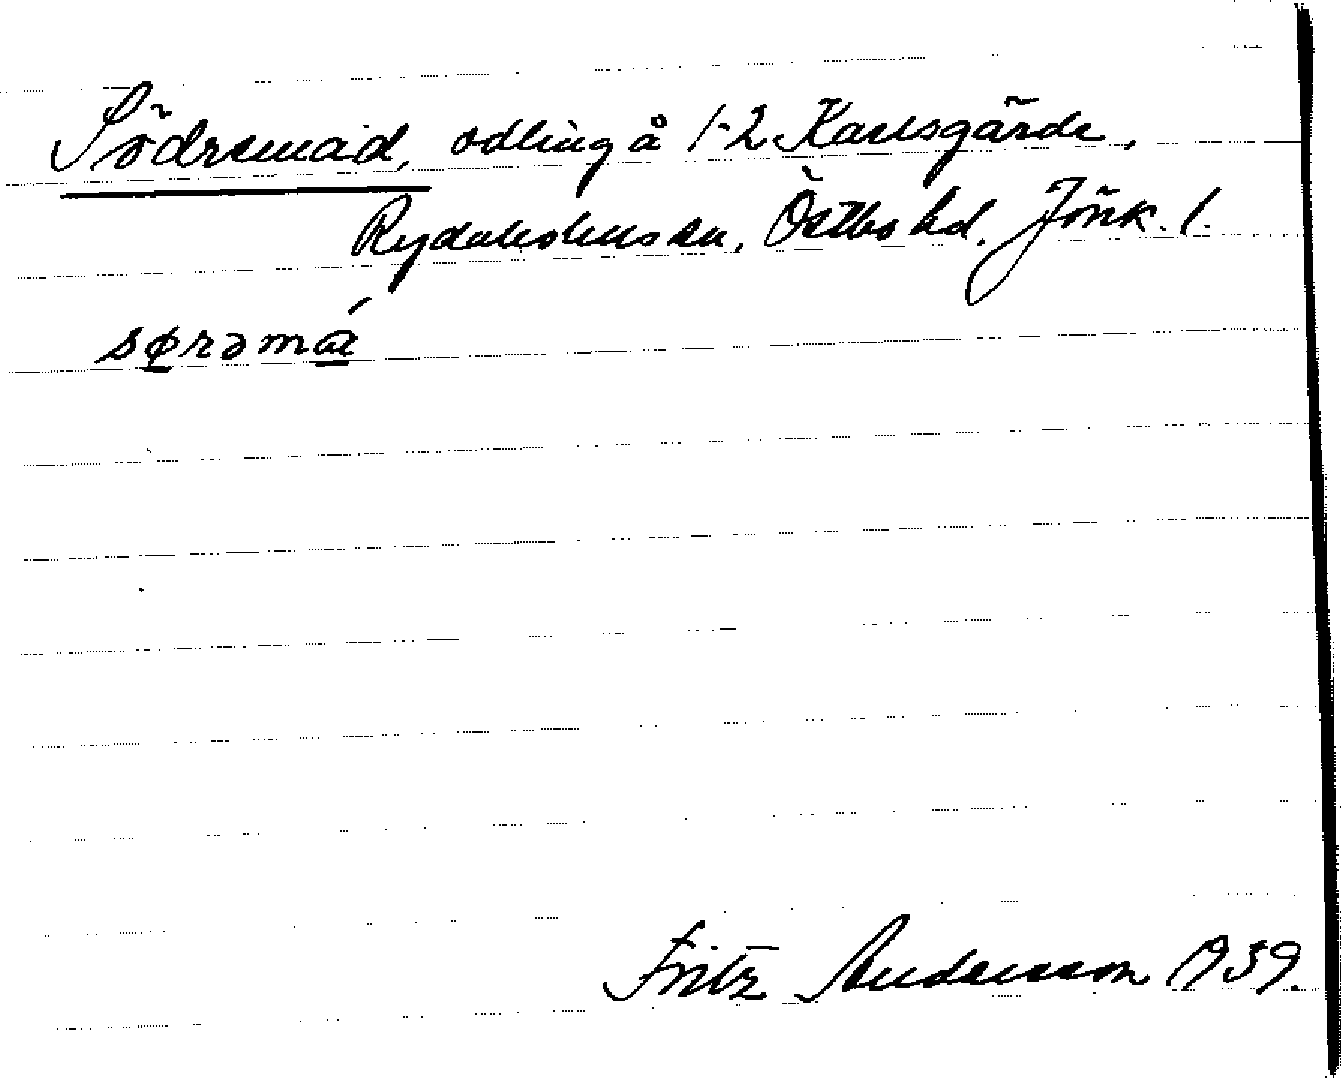 Södremad, odling å 1-2 Karlsgärde,
Rydaholms sn, Östbo hd. Jönk. l.
sørəmá
Fritz Andersson 1939.